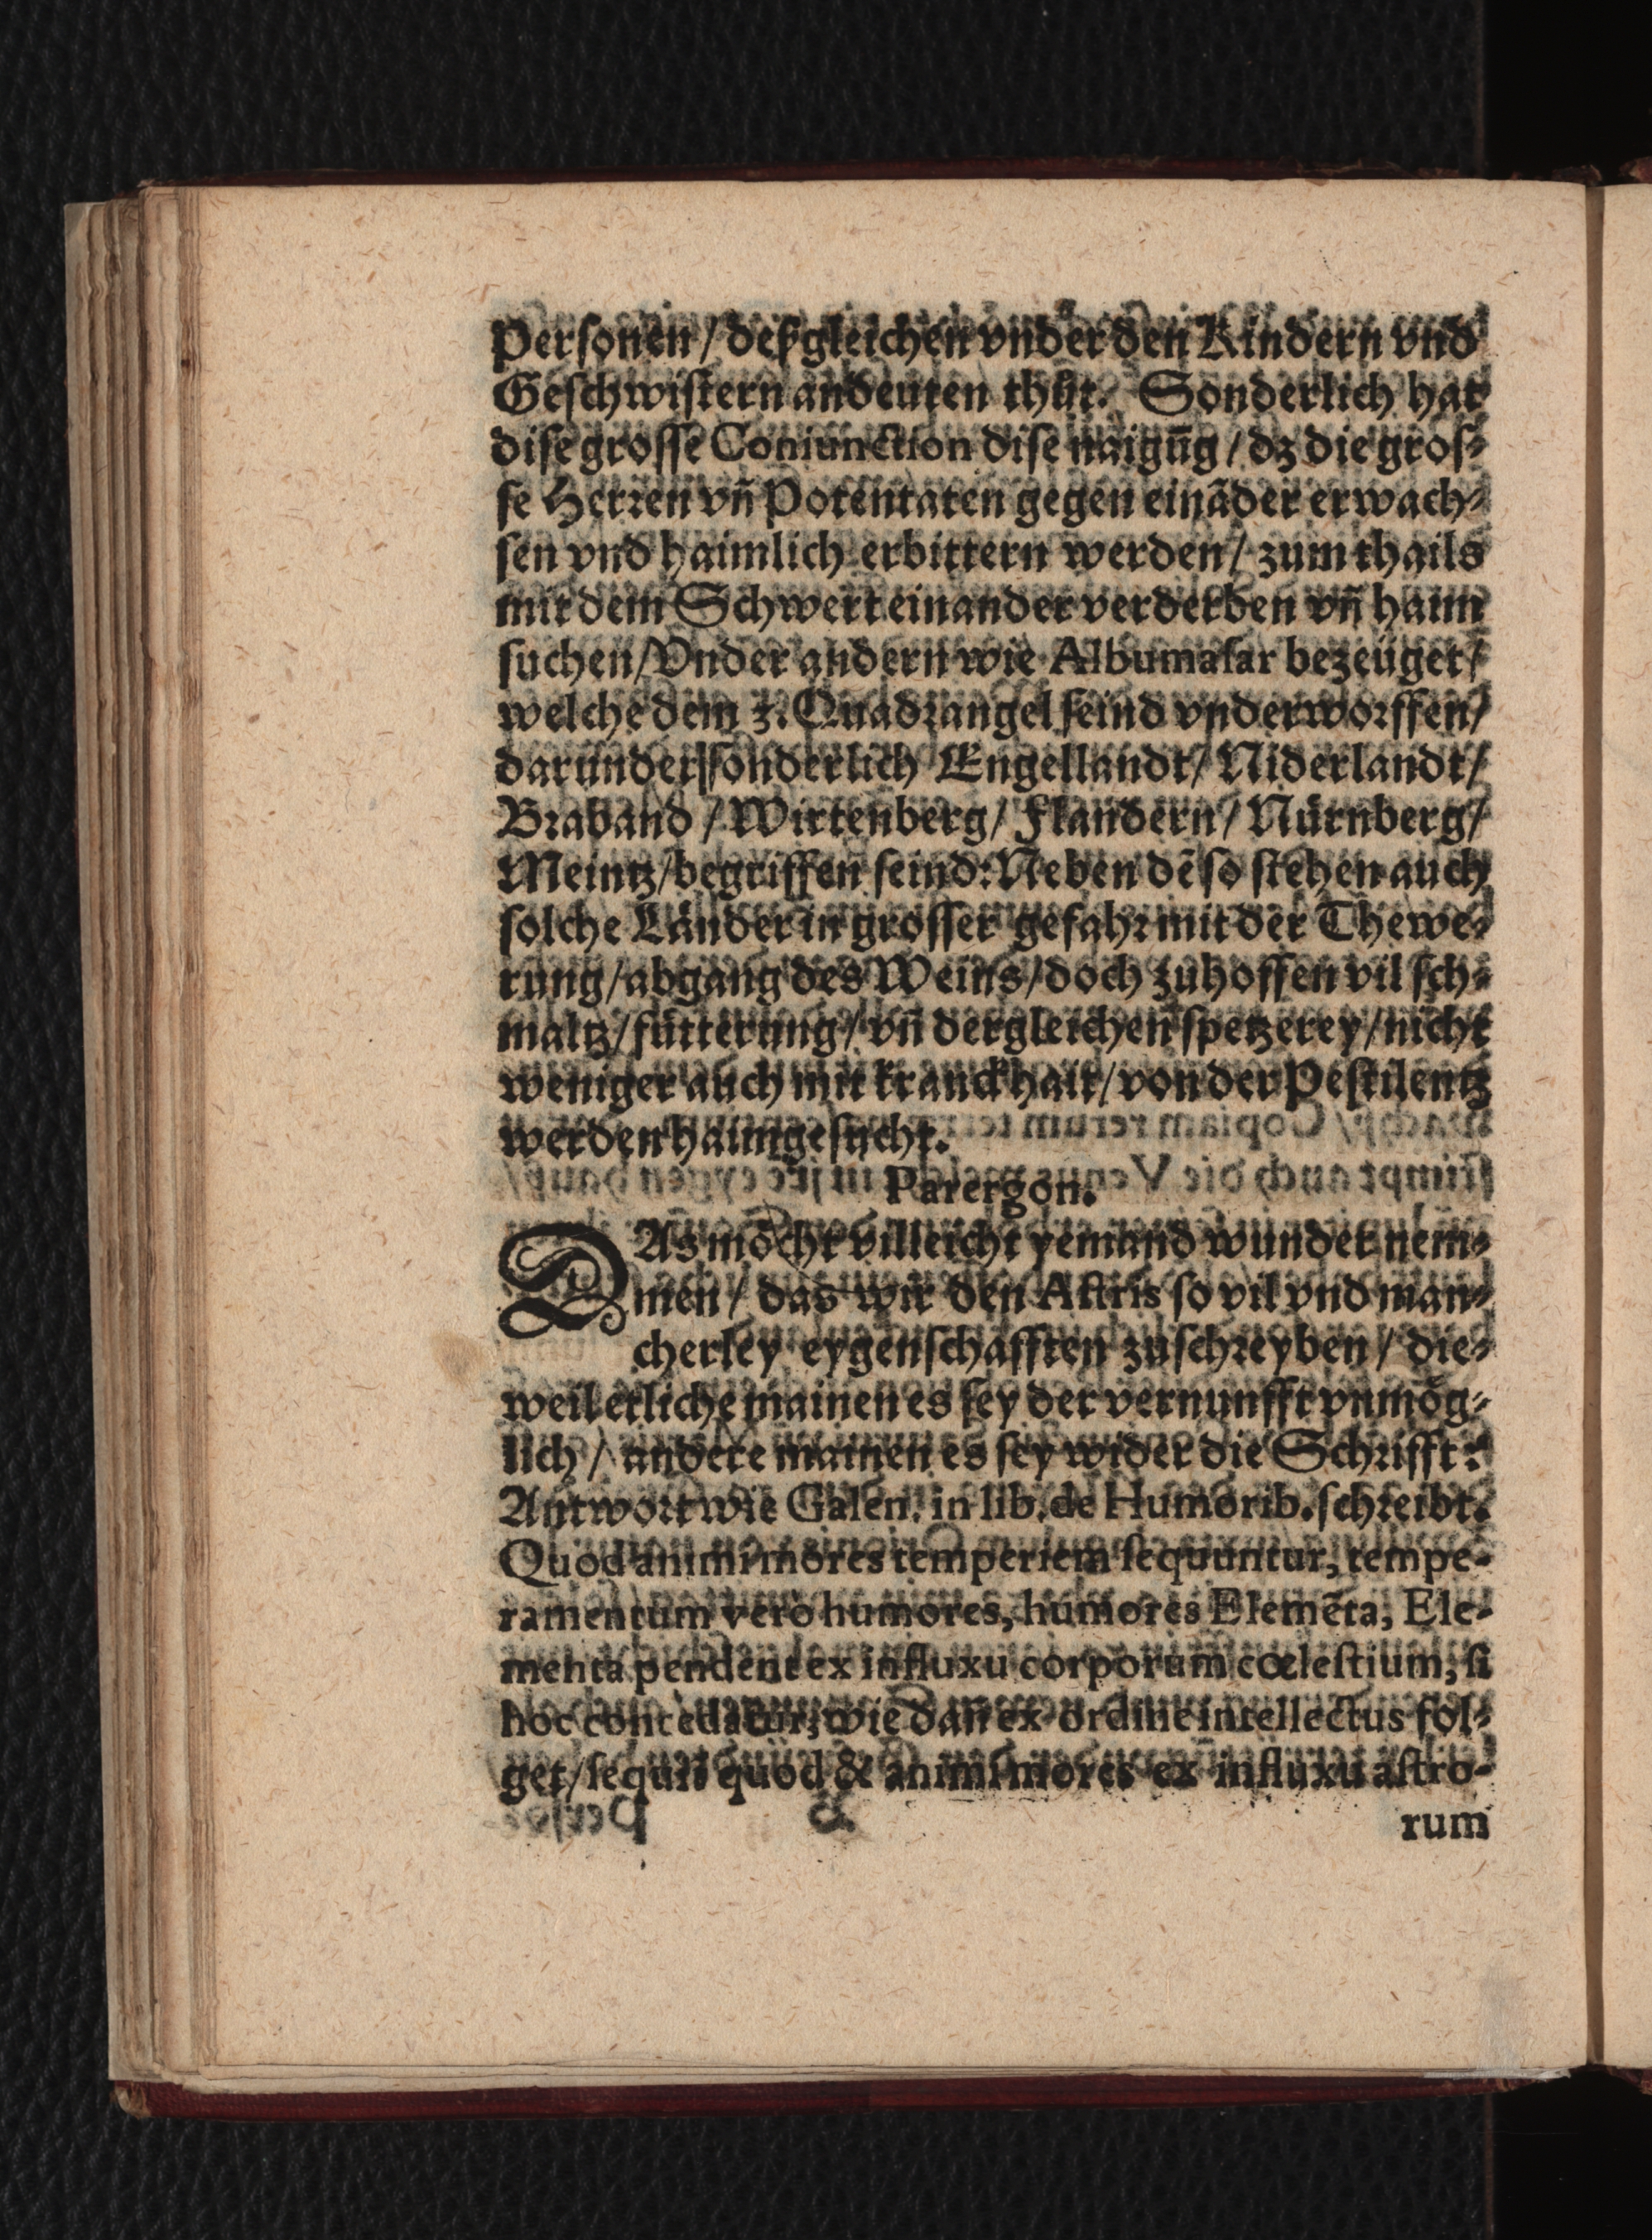 Personen / deßgleichen vnder den Kindern vnd
Geschwistern andeuten thůt. Sonderlich hat
dise grosse Coniunction dise naigūg / dz die gros-
se Herren vn̄ Potentaten gegen einãder erwach-
sen vnd haimlich erbittern werden / zum thails
mit dem Schwert einander verderben vn̄ haim
suchen / Vnder andern wie Albumasar bezeüget /
welche dem 3. Quadrangel seind vnderworffen /
darunder sonderlich Engellandt / Niderlandt /
Braband / Wirtenberg / Flandern / Nürnberg /
Meintz / begriffen seind: Neben dē so stehen auch
solche Länder in grosser gefahr mit der Thewe-
rung / abgang des Weins / doch zuhoffen vil sch-
maltz / fütterung / vn̄ dergleichen spetzerey / nicht
weniger auch mit kranckhait / von der Pestilentz
werden haimgesucht.
Parergon.
DAs möcht villeicht yemand wunder nem-
men / das wir den Astris so vil vnd man-
cherley eygenschafften zuschreyben / die-
weil etliche mainen es sey der vernunfft vnmög-
lich / andere mainen es sey wider die Schrifft:
Antwort wie Galen. in lib. de Humorib. schreibt.
Quod animi mores temperiem sequuntur, tempe-
ramentum vero humores, humores Elemēta, Ele-
menta pendent ex influxu corporum cœlestium, si
hoc concedatur, wie dan̄ ex ordine intellectus fol-
get / sequit quod & animi mores ex influxu astro-
rum